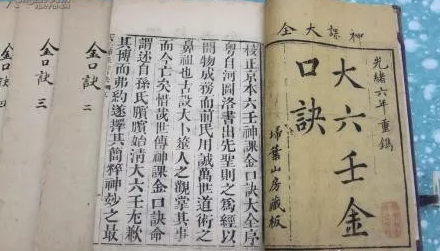 神課大全
光緒六年重鐫
大六壬金
口訣
埽葉山房藏板
校正京本六壬神課金口訣大全序
粵自河圖洛書出先聖則之爲經以
開物成務而前民用誠萬世道術之
鼻祖也古設大卜筮人之觀掌其事
而今亡矣惜哉世傳神課金口訣命
謂述自孫氏臏始清大六壬尤歉
其博而弗約遂擇其簡粹神妙之最
金口訣 二
金口訣 三
金口訣 四